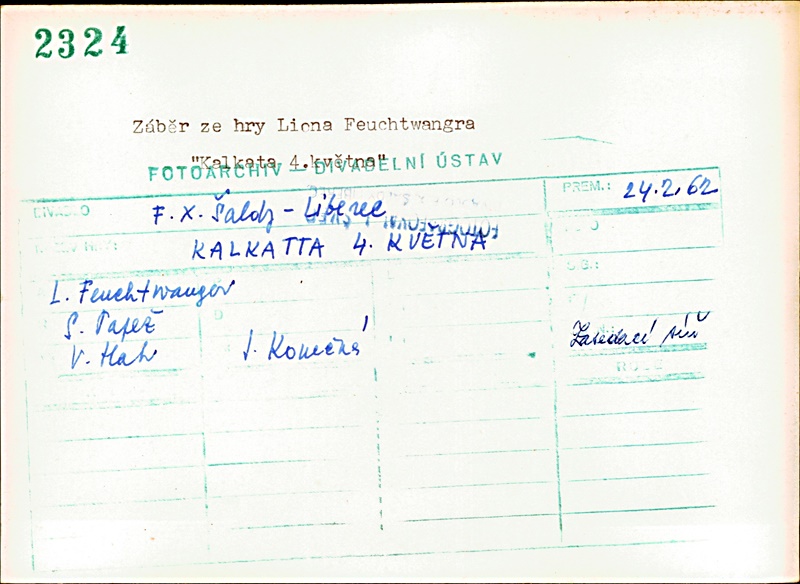 2324
Záběr ze hry Liona Feuchtwangra
"Kalkata 4.května"
FOTOARCHIV — DIVADELNÍ ÚSTAV
DIVADLO F. X. Šaldy - Liberec PREM.: 24.2.62
KALKATTA 4. KVĚTNA
L. Feuchtwanger
S. Papež
V. J. Konečná Zasedací síň
ROLE